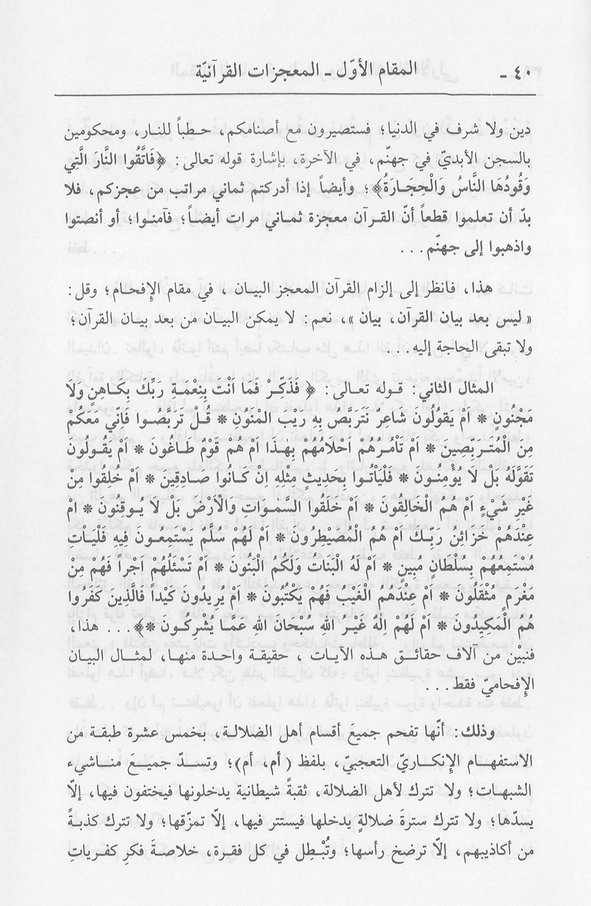 ٤٠ - المقام الأوّل - المعجزات القرآنيّة
دين ولا شرف في الدنيا؛ فستصيرون مع أصنامكم، حطباً للنار، ومحكومين
بالسجن الأبديّ في جهنّم، في الآخرة، بإشارة قوله تعالى: ﴿فَاتَّقُوا النَّارَ الَّتِي
وَقُودُهَا النَّاسُ وَالْحِجَارَةُ﴾؛ وأيضاً إذا أدركتم ثماني مراتب من عجزكم، فلا
بدّ أن تعلموا قطعاً أنّ القرآن معجزة ثماني مرات أيضاً؛ فآمنوا؛ أو أنصتوا
واذهبوا إلى جهنّم...
هذا، فانظر إلى إلزام القرآن المعجز البيان، في مقام الإفحام؛ وقل:
«ليس بعد بيان القرآن، بيان»، نعم: لا يمكن البيان من بعد بيان القرآن؛
ولا تبقى الحاجة إليه...
المثال الثاني: قوله تعالى: ﴿فَذَكِّرْ فَمَا اَنْتَ بِنِعْمَةِ رَبِّكَ بِكَاهِنٍ وَلَا
مَجْنُونٍ * اَمْ يَقُولُونَ شَاعِرٌ نَتَرَبَّصُ بِهِ رَيْبَ الْمَنُونِ * قُلْ تَرَبَّصُوا فَاِنِّي مَعَكُمْ
مِنَ الْمُتَرَبِّصِينَ * اَمْ تَأْمُرُهُمْ اَحْلَامُهُمْ بِهٰذَا اَمْ هُمْ قَوْمٌ طَاغُونَ * اَمْ يَقُولُونَ
تَقَوَّلَهُ بَلْ لَا يُؤْمِنُونَ * فَلْيَأْتُوا بِحَدِيثٍ مِثْلِهِ اِنْ كَانُوا صَادِقِينَ * اَمْ خُلِقُوا مِنْ
غَيْرِ شَيْءٍ اَمْ هُمُ الْخَالِقُونَ * اَمْ خَلَقُوا السَّمٰوَاتِ وَالْاَرْضَ بَلْ لَا يُوقِنُونَ * اَمْ
عِنْدَهُمْ خَزَائِنُ رَبِّكَ اَمْ هُمُ الْمُصَيْطِرُونَ * اَمْ لَهُمْ سُلَّمٌ يَسْتَمِعُونَ فِيهِ فَلْيَأْتِ
مُسْتَمِعُهُمْ بِسُلْطَانٍ مُبِينٍ * اَمْ لَهُ الْبَنَاتُ وَلَكُمُ الْبَنُونَ * اَمْ تَسْئَلُهُمْ اَجْراً فَهُمْ مِنْ
مَغْرَمٍ مُثْقَلُونَ * اَمْ عِنْدَهُمُ الْغَيْبُ فَهُمْ يَكْتُبُونَ * اَمْ يُرِيدُونَ كَيْداً فَالَّذِينَ كَفَرُوا
هُمُ الْمَكِيدُونَ * اَمْ لَهُمْ اِلٰهٌ غَيْرُ اللهِ سُبْحَانَ اللهِ عَمَّا يُشْرِكُونَ *﴾... هذا،
فنبيّن من آلاف حقائق هذه الآيات، حقيقة واحدة منها، لمثال البيان
الإفحاميّ فقط...
وذلك: أنّها تفحم جميعَ أقسام أهل الضلالة، بخمس عشرة طبقة من
الاستفهام الإنكاريّ التعجبيّ، بلفظ (أم، أم)؛ وتسدّ جميعَ مناشيء
الشبهات؛ ولا تترك لأهل الضلالة، ثقبةً شيطانية يدخلونها فيختفون فيها، إلّا
يسدّها؛ ولا تترك سترةَ ضلالةٍ يدخلها فيستتر فيها، إلّا تمزّقها؛ ولا تترك كذبةً
من أكاذيبهم، إلّا ترضخ رأسها؛ وتُبْطِل في كل فقرة، خلاصةَ فكرِ كفرياتِ